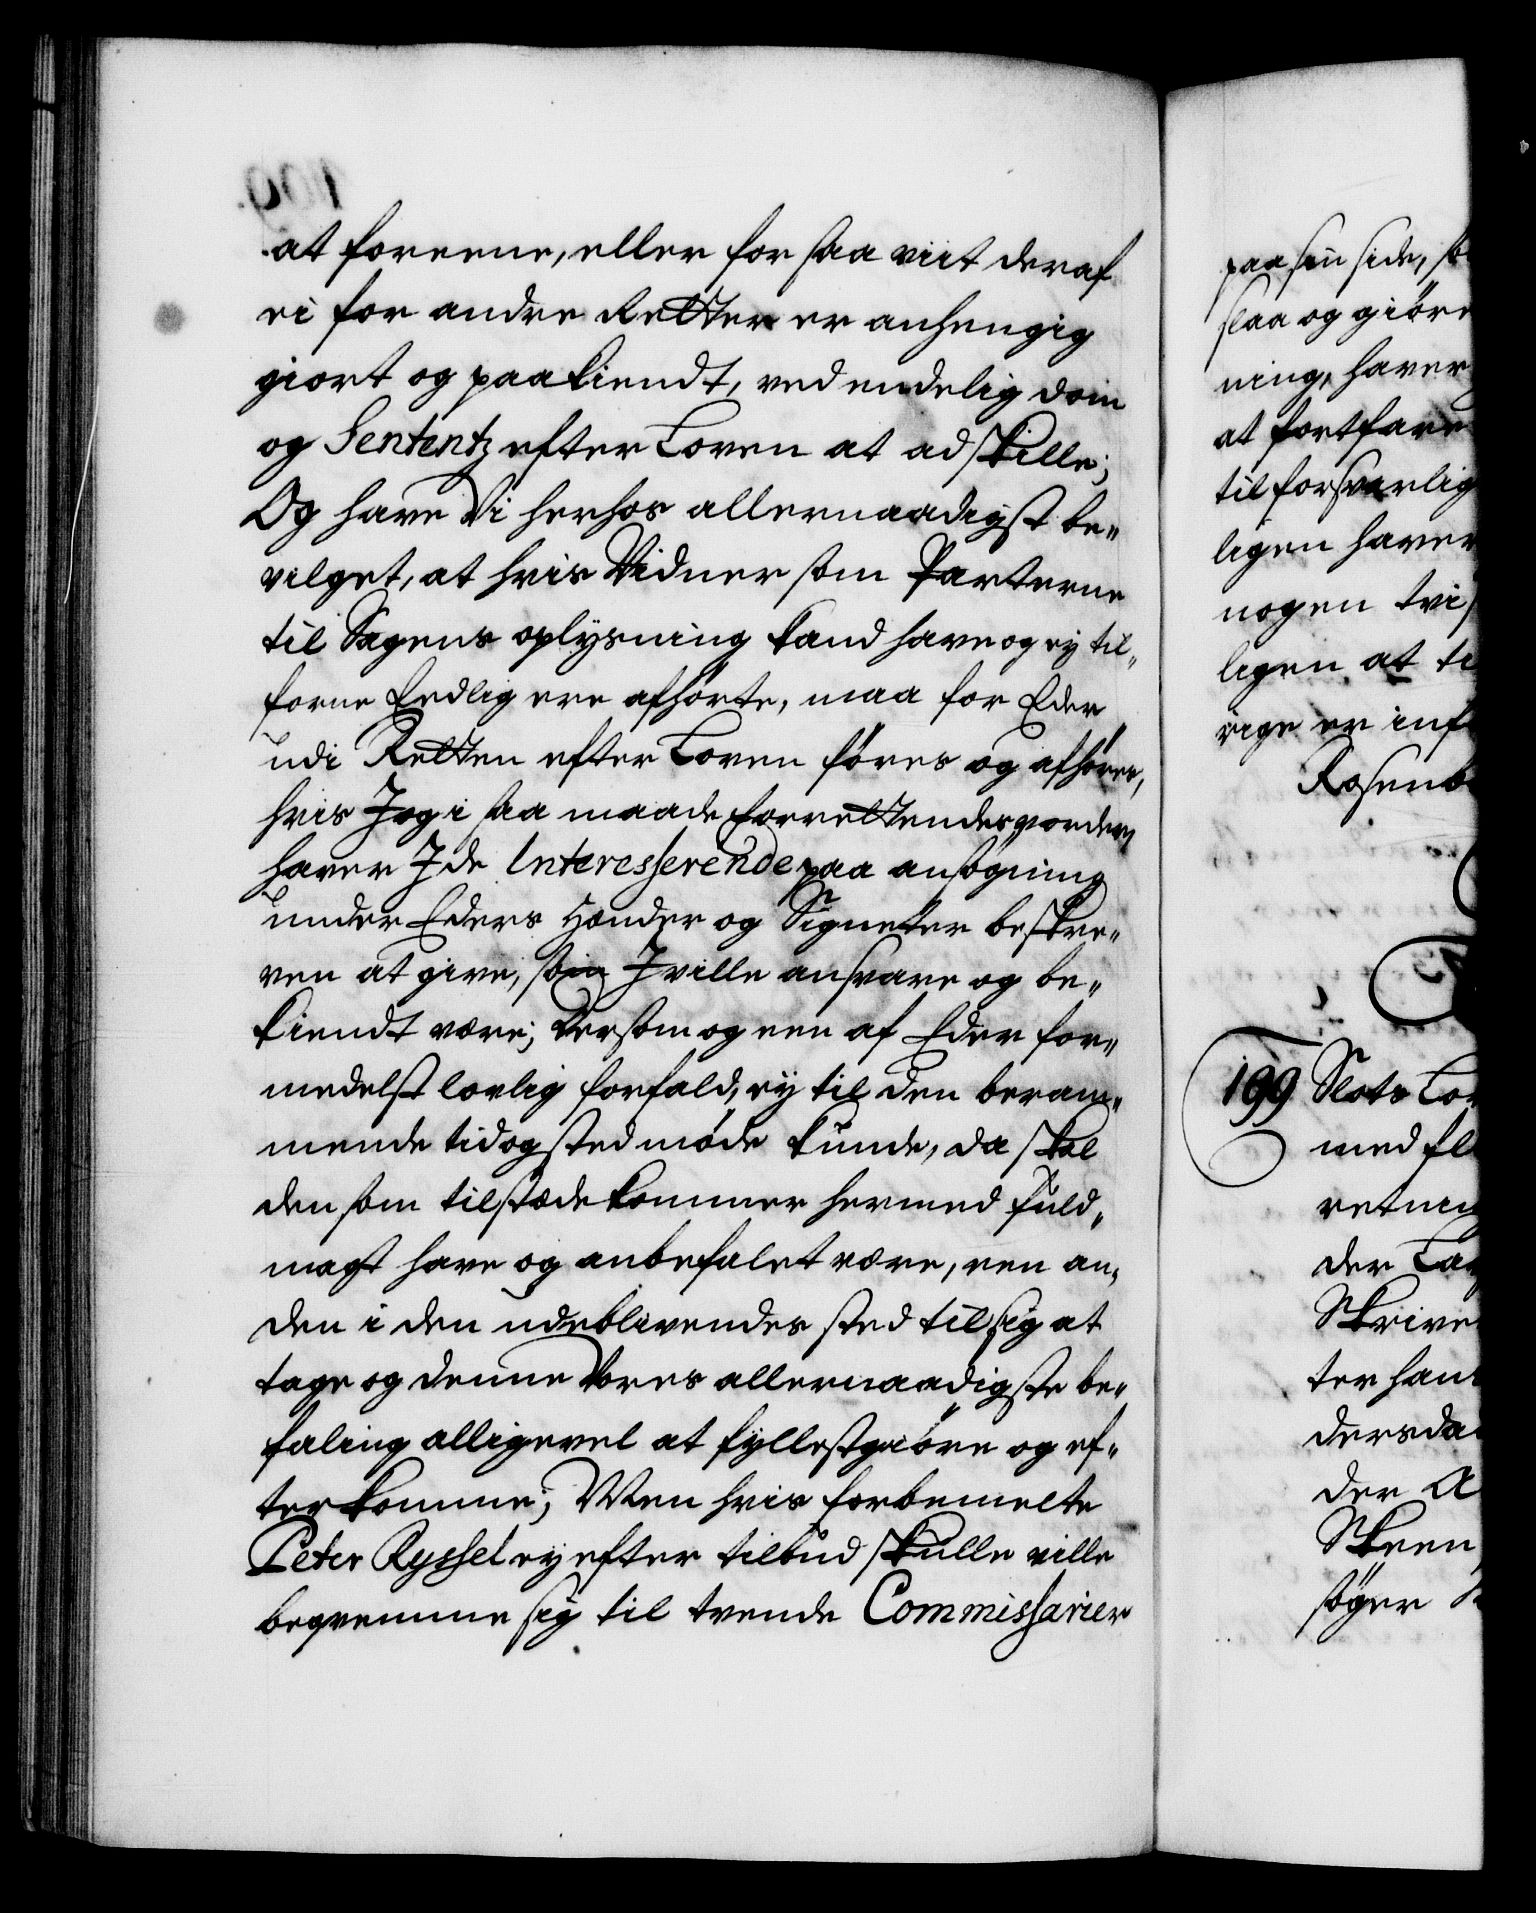 at foreene, eller for saa viit deraf
ei for andre Retter er anhengig
giort og paakiendt, ved endelig dom
og Sententz efter Loven at adskille;
Og have Vi herhos allernaadigst be„
vilget, at hvis Vidner som Parterne
til Sagens oplysning kand have og ey til„
forne Eedlig ere afhørte, maa for Eder
udi Retten efter Loven føres og afhøres,
hvis J og i saa maade forrettendes vorder,
haver J de Interesserende paa ansøgning
under Eders Hænder og Signeter beskre„
ven at give, som J ville ansvare og be„
kiendt være; Dersom og een af Eder for„
medelst lovlig forfald, ey til den beram„
mende tid og sted møde kunde, da skal
den som tilstæde kommer hermed fuld„
magt have og anbefalet være, een an„
den i den udeblivendes sted til sig at
tage og denne Vores allernaadigste be„
faling alligevel at fyllestgiøre og ef„
terkomme; Men hvis forbemelte
Peter Ryssel ey efter tilbud skulle ville
beqvemme sig til tvende Commissarier
paa sin side, so
slaa og giøre
ning, haver
at fortfare
til forsvarlig
ligen haver
nogen tvis
ligen at ti
rige er inf
Rosenb
199 Slots Lo
med fl
retning
der La
Skrive
ter hans
dersda
der A
Skeen
søger